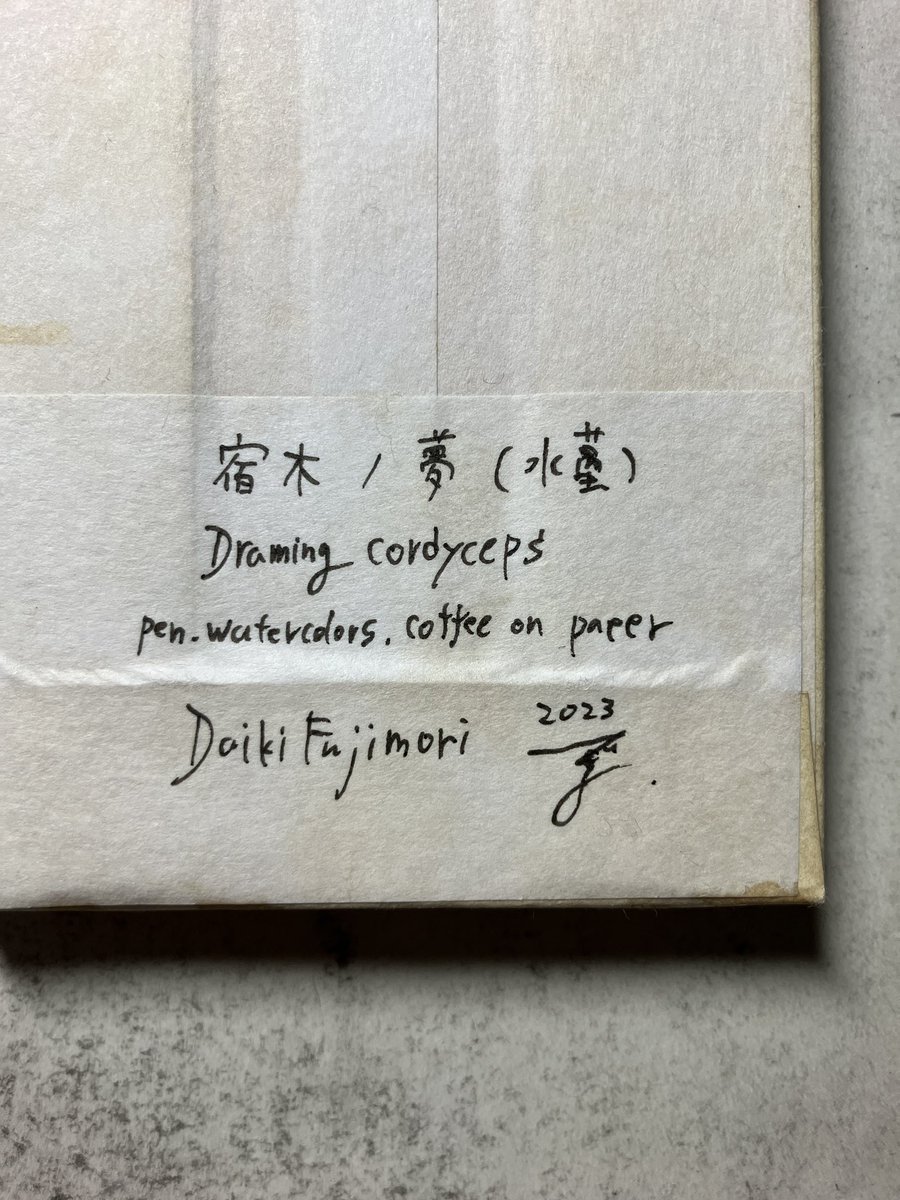 宿木ノ夢
Draming cordyceps
pen.watercolors. coffee on paper
Daiki Fujimori 2023